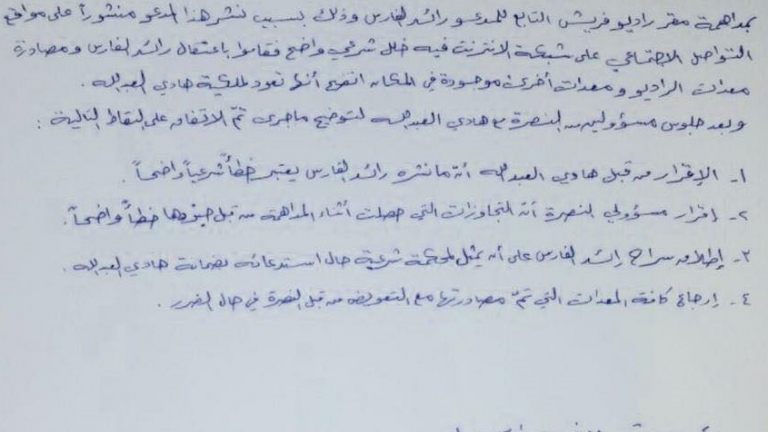 بمداهمة مقر راديو فريش التابع للمدعو رائد الفارس وذلك بسبب نشر هذا المدعو منشوراً على مواقع
التواصل الاجتماعي على شبكة الانترنت فيه خلل شرعي واضح فقاموا باعتقال رائد الفارس ومصادرة
معدات الراديو ومعدات أخرى موجودة في المكان اتضح أنها تعود لملكية هادي العبدالله .
وبعد جلوس مسؤولين من النصرة مع هادي العبدالله لتوضيح ماجرى تمّ الاتفاق على النقاط التالية :
١- الإقرار من قبل هادي العبدالله أنّ ما نشره رائد الفارس يعتبر خطأً شرعياً واضحاً .
٢- اقرار مسؤولي النصرة أنّ التجاوزات التي حصلت أثناء المداهمة من قبل جنودها خطأً واضحاً .
٣- إطلاق سراح رائد الفارس على أن يمثل لمحكمة شرعية حال استدعائه بضمانة هادي العبدالله .
٤- إرجاع كافة المعدات التي تمّ مصادرتها مع التعويض من قبل النصرة في حال الضرر .